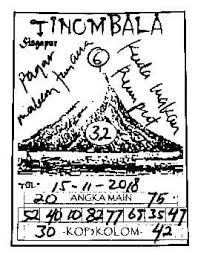 TINOMBALA
Singapur
Pagar
makan
6
Kuda makan
Rumput
32
TGL: 15-11-2018
20 ANGKA MAIN 75
52 40 10 82 77 67 35 47
30 -KOP>KOLOM- 42